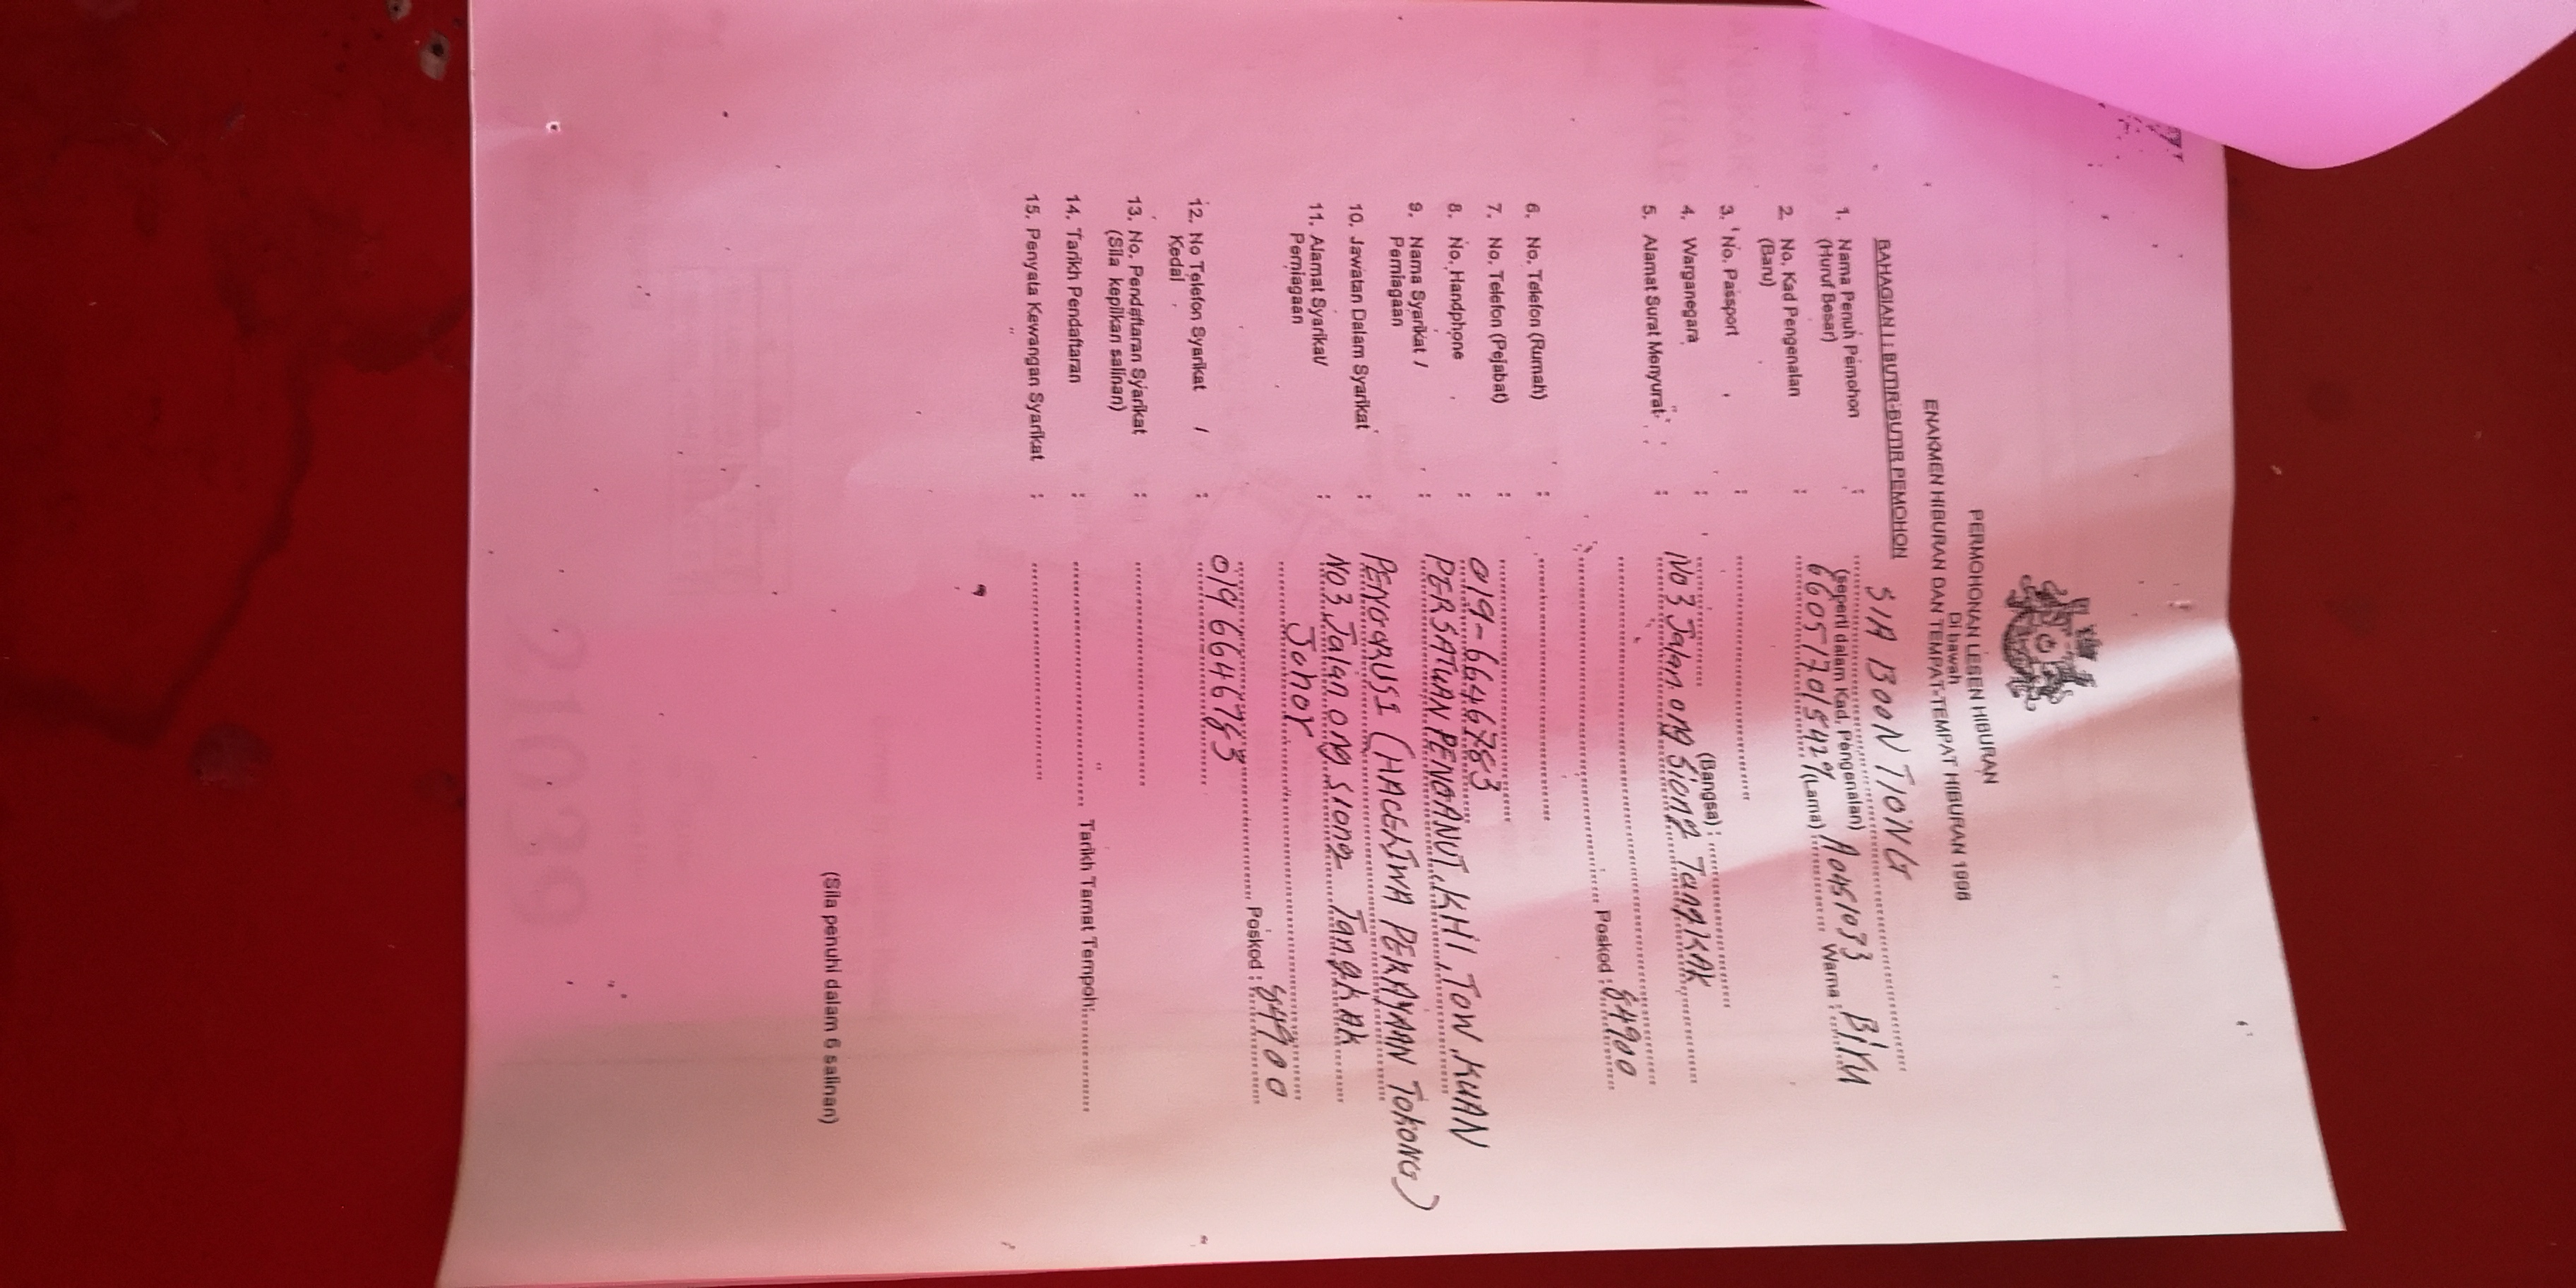 PERMOHONAN LESEN HIBURAN
Di bawah
ENAKMEN HIBURAN DAN TEMPAT-TEMPAT HIBURAN 1998
BAHAGIAN I : BUTIR-BUTIR PEMOHON
1. Nama Penuh Pemohon : SIA BOON TIONG
(Huruf Besar) (seperti dalam Kad Pengenalan)
2. No. Kad Pengenalan : 660517015429 (Lama) : A0451033 Warna : BIRU
(Baru)
3. No. Passport :
4. Warganegara : (Bangsa) :
5. Alamat Surat Menyurat : No 3 Jalan ong Siong Tangkak
Poskod : 84900
6. No. Telefon (Rumah) :
7. No. Telefon (Pejabat) :
8. No. Handphone : 019-6646783
9. Nama Syarikat / : PERSATUAN PENGANUT KHI TOW KUAN
Perniagaan
10. Jawatan Dalam Syarikat : PENGURUSI (HAGEATWA PERAYAAN TOKONG)
11. Alamat Syarikat/ : No3 Jalan ong siong Tangkak
Perniagaan Johor
Poskod : 84900
12. No Telefon Syarikat / : 0196646783
Kedai
13. No. Pendaftaran Syarikat :
(Sila kepilkan salinan)
14. Tarikh Pendaftaran : Tarikh Tamat Tempoh:
15. Penyata Kewangan Syarikat :
(Sila penuhi dalam 6 salinan)